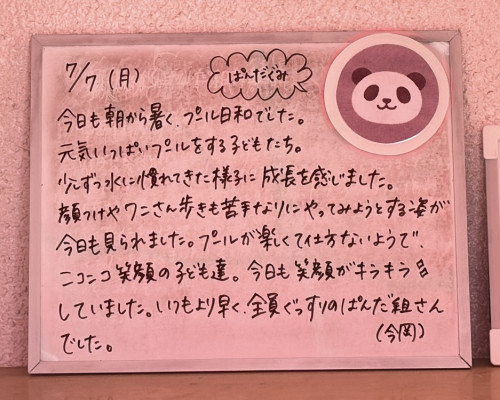 7/7 (月)
ぱんだぐみ
今日も朝から暑く、プール日和でした。
元気いっぱいプールをする子どもたち。
少しずつ水に慣れてきた様子に成長を感じました。
顔つけやワニさん歩きも苦手なりにやってみようとする姿が
今日も見られました。プールが楽しくて仕方ないようで、
ニコニコ笑顔の子ども達。今日も笑顔がキラキラ
していました。いつもより早く、全員ぐっすりのぱんだ組さん
でした。
(今岡)